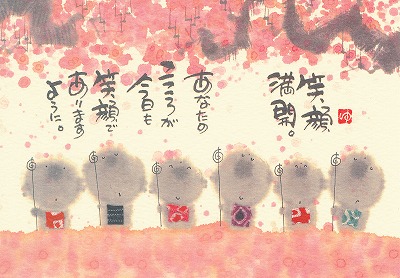 笑顔、
満開。
あなたの
こころが
今日も
笑顔で
あります
ように。
ゆ